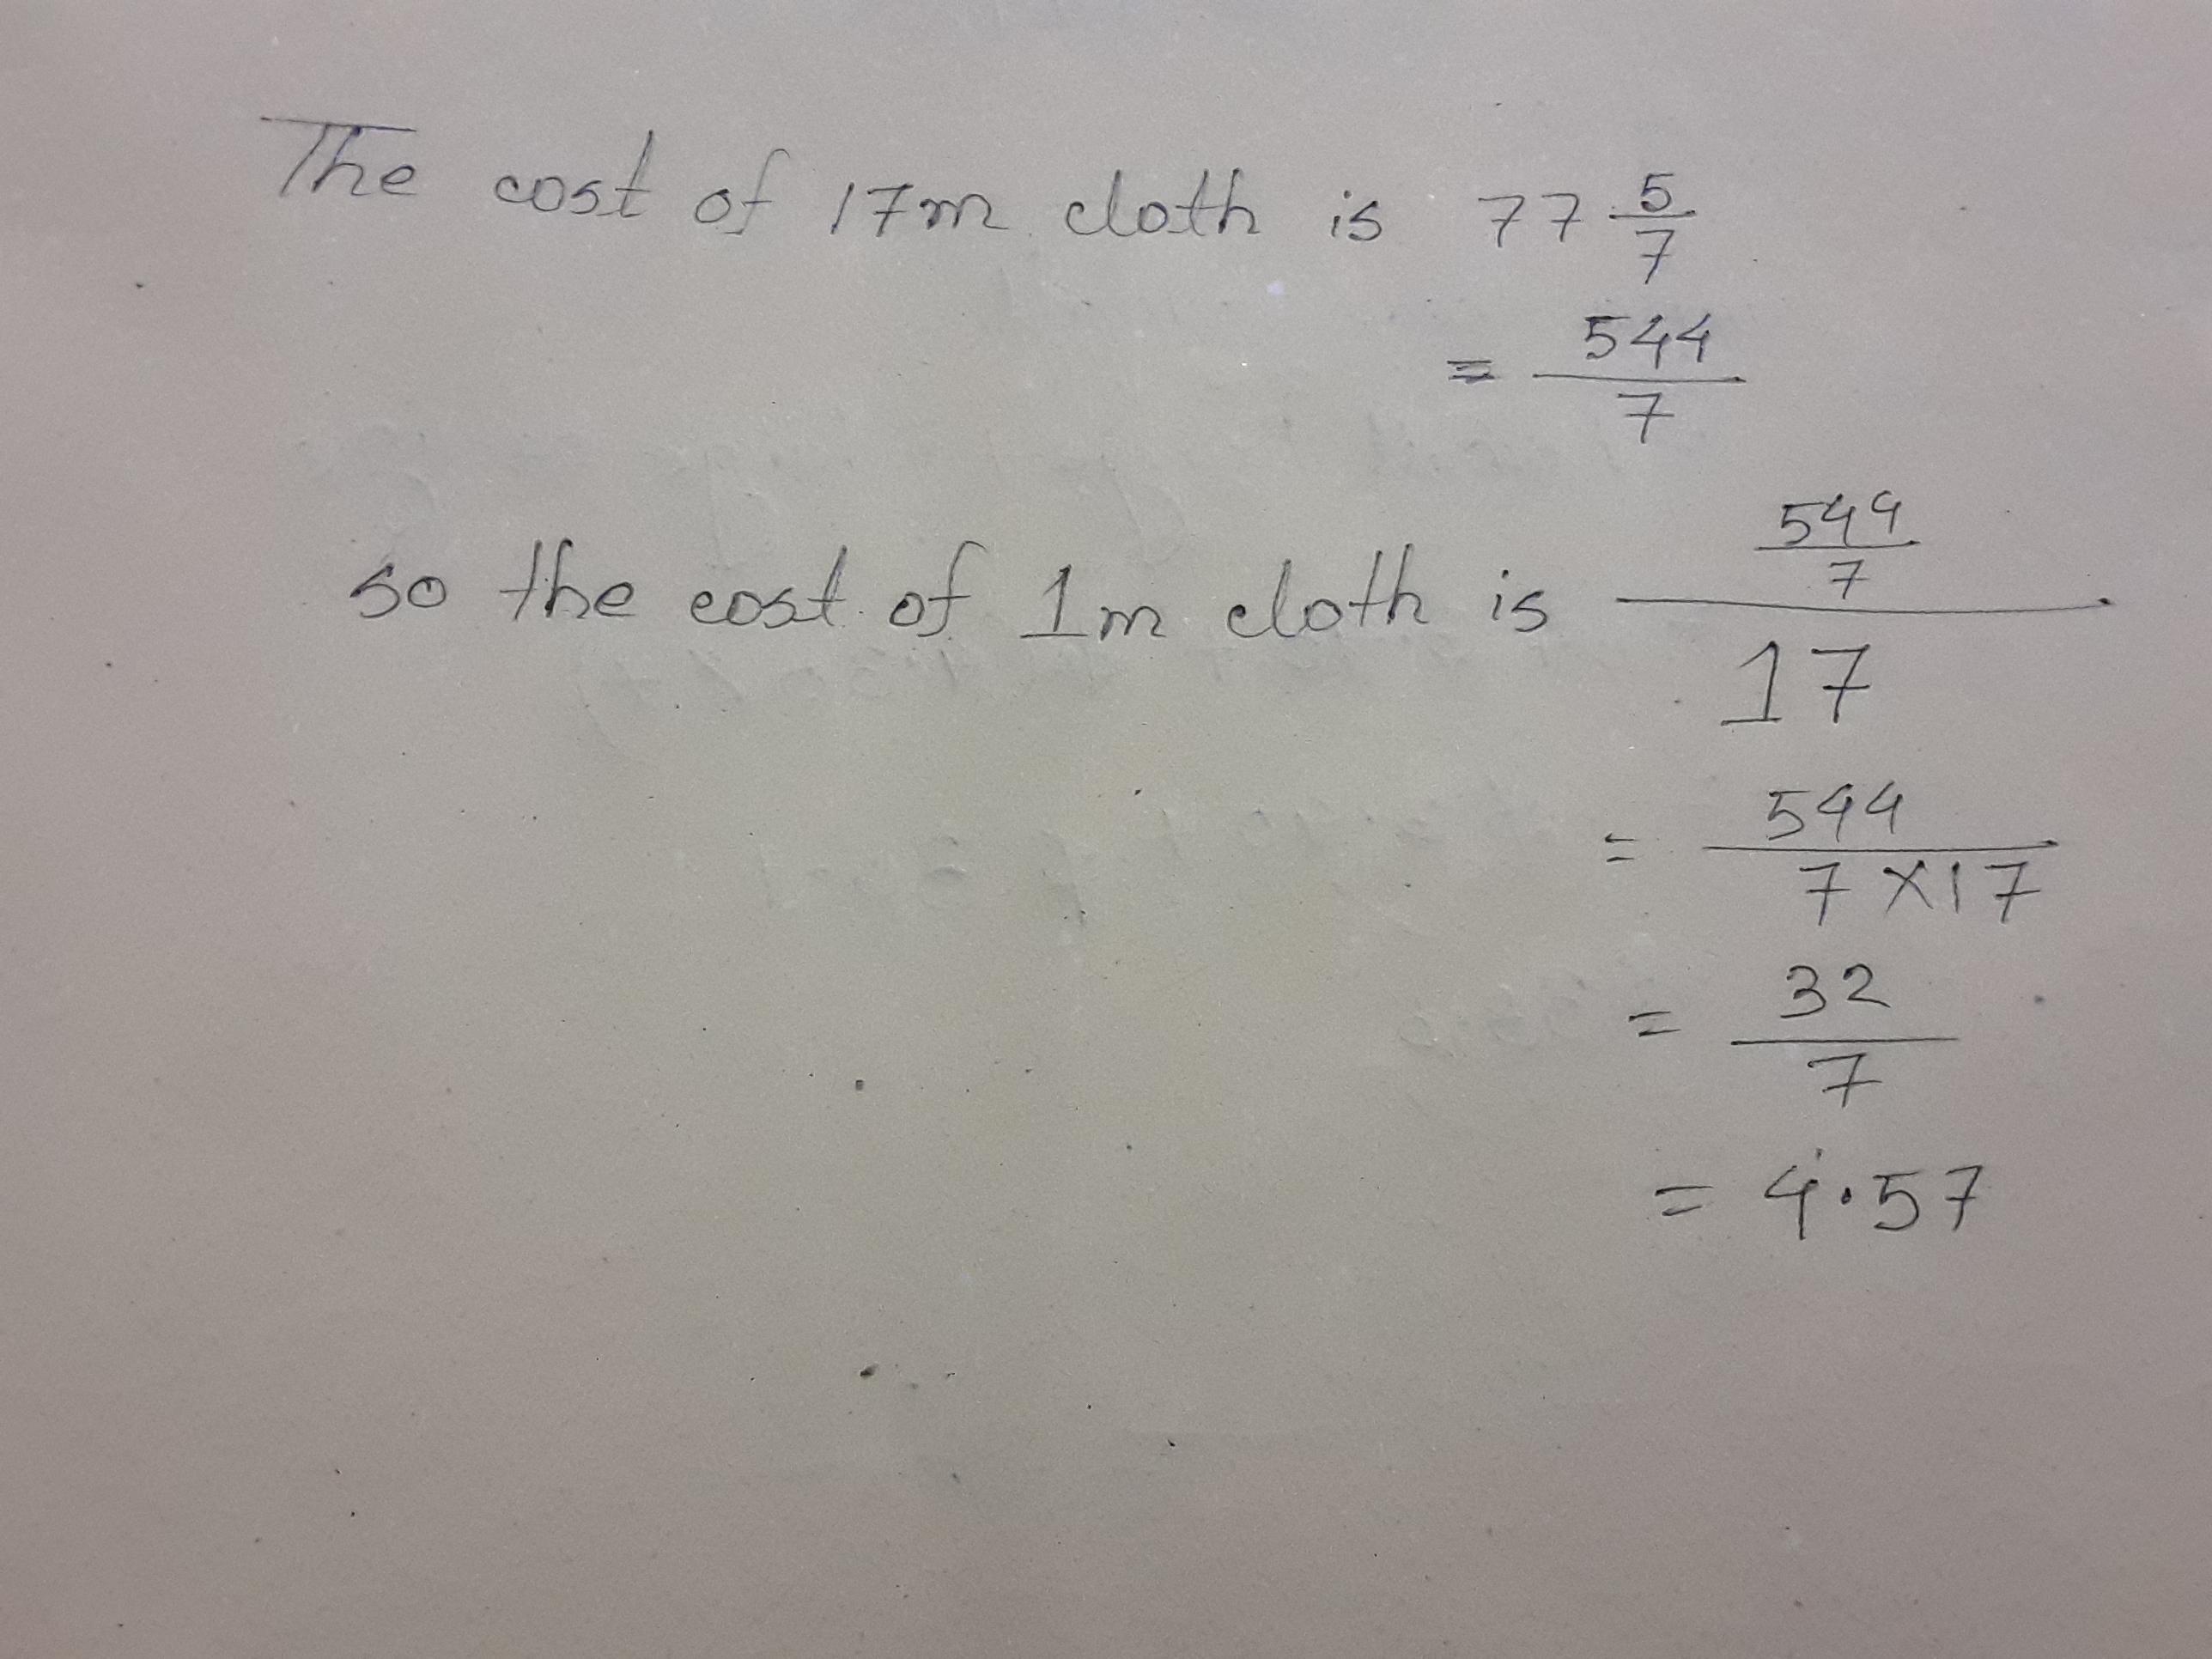 The cost of 17m cloth is 77 5/7
= 544/7
so the cost of 1m cloth is (544/7)/17
= 544/(7×17)
= 32/7
= 4.57